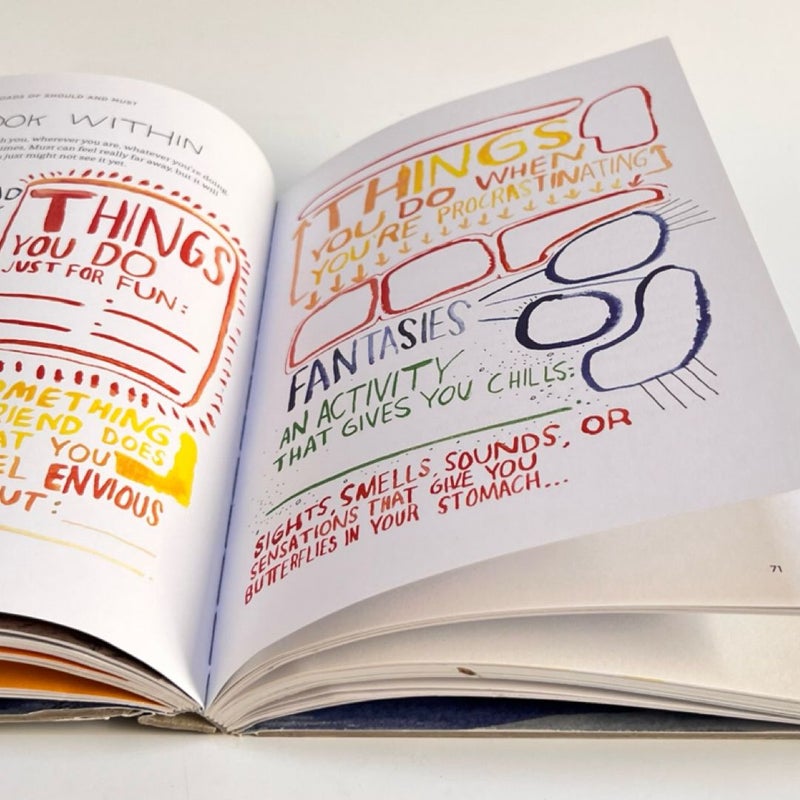 OF SHOULD AND MUST
WITHIN
you, wherever you are, whatever you're doing.
Must can feel really far away, but it will
just might not see it yet.
THINGS
YOU DO
JUST FOR FUN:
DOES
YOU
ENVIOUS
THINGS
YOU DO WHEN
YOU'RE PROCRASTINATING
FANTASIES
AN ACTIVITY
THAT GIVES YOU CHILLS:
SIGHTS, SMELLS, SOUNDS, OR
SENSATIONS THAT GIVE YOU
BUTTERFLIES IN YOUR STOMACH...
71